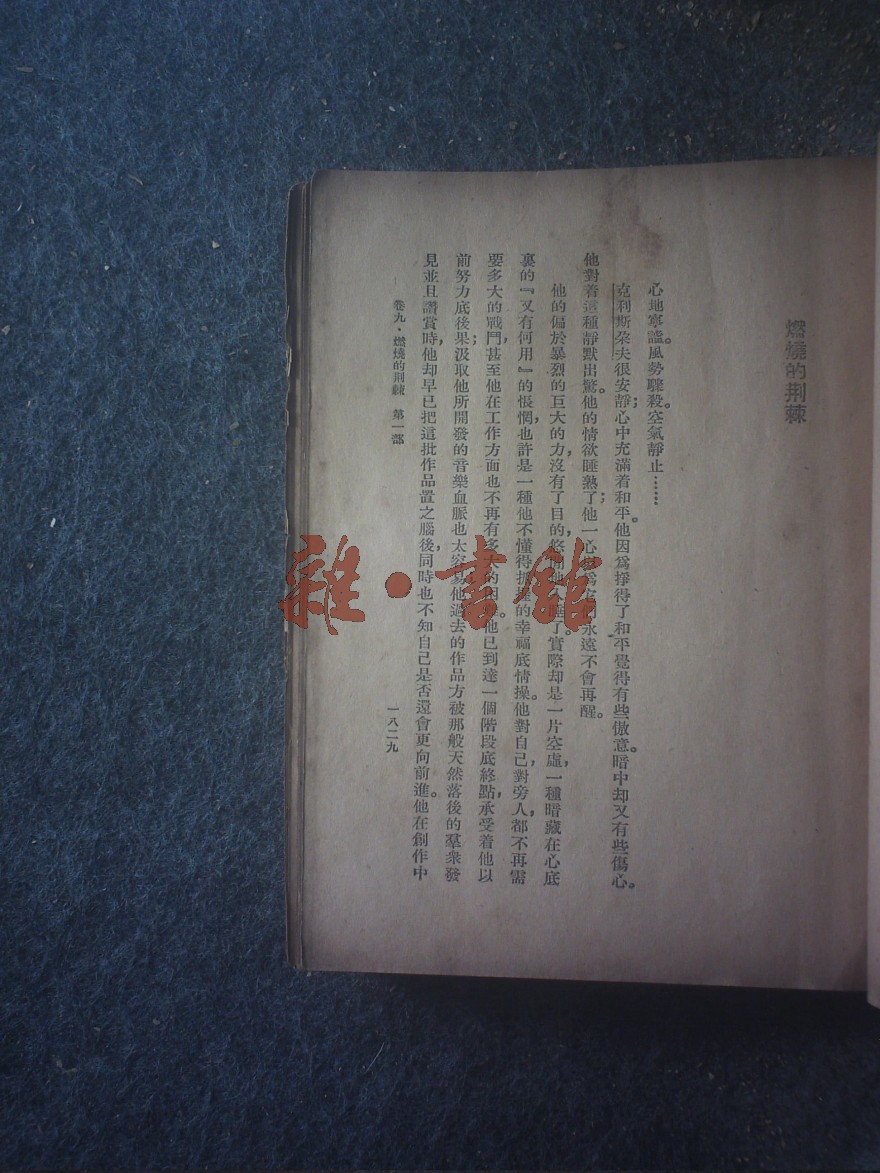 燃燒的荆棘
心地寧謐。風勢驟殺。空氣靜止……
克利斯朶夫很安靜;心中充滿着和平。他因爲掙得了和平,覺得有些傲意。暗中却又有些傷心。
他對着這種靜默出驚。他的情欲睡熟了;他一心 永遠不會再醒。
他的偏於暴烈的巨大的力,沒有了目的, 了。實際却是一片空虛,一種暗藏在心底
裏的『又有何用』的悵惘,也許是一種他不懂得 的幸福底情操。他對自己,對旁人,都不再需
要多大的戰鬥,甚至他在工作方面也不再有多 他已到達一個階段底終點,承受着他以
前努力底後果;汲取他所開發的音樂血脈也太容易;他過去的作品方被那般天然落後的羣衆發
見並且讚賞時,他却早已把這批作品置之腦後,同時也不知自己是否還會更向前進。他在創作中
卷九·燃燒的荆棘 第一部
一八二九
雜·書館